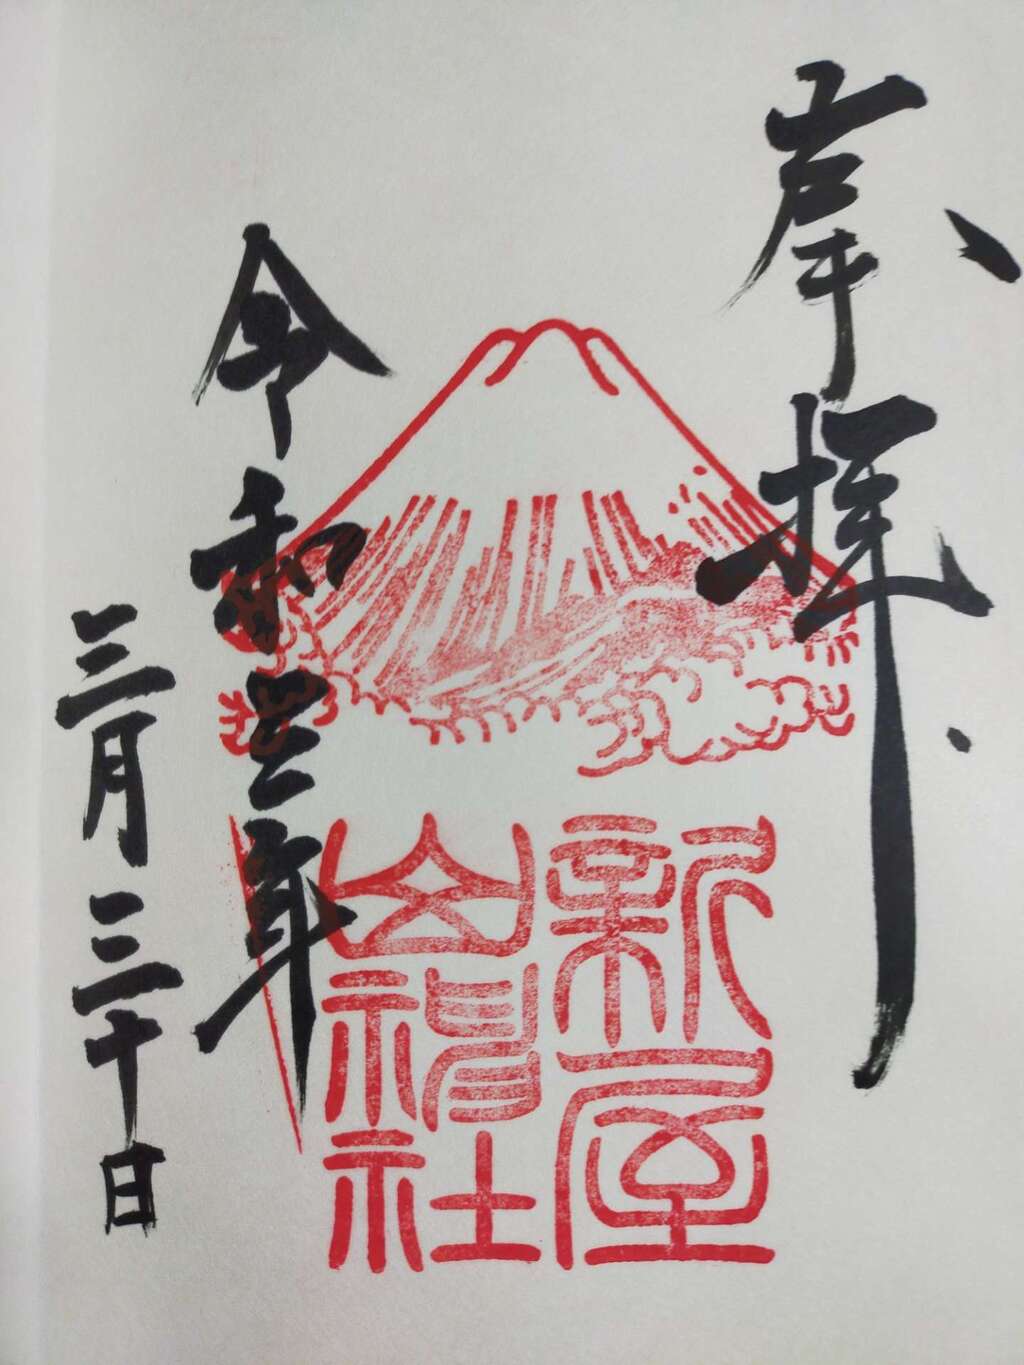 奉拝
新屋
山神社
令和三年
三月三十日